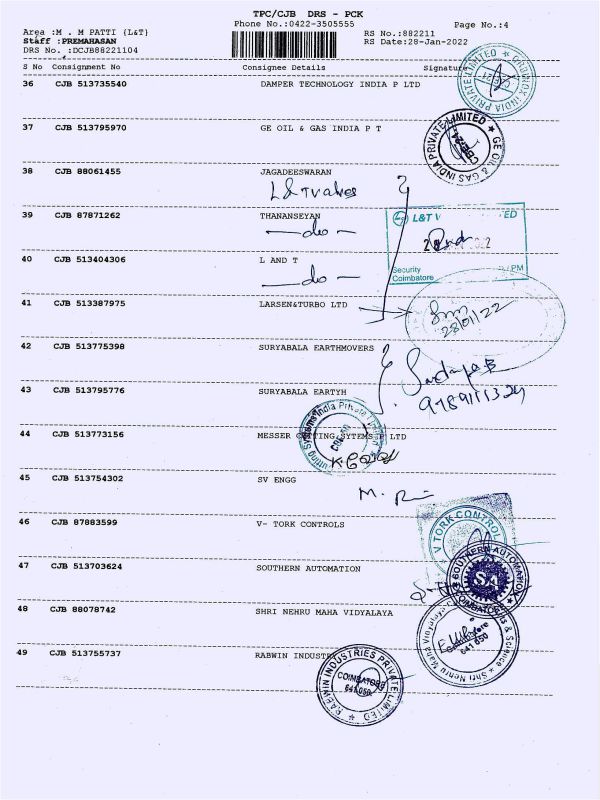 TPC/CJB DRS - PCK
Phone No.:0422-3505555 Page No.:4
Area :M . M PATTI {L&T} RS No.:882211
Staff :PREMAHASAN RS Date:28-Jan-2022
DRS No. :DCJB88221104
S No Consignment No Consignee Details Signature
36 CJB 513735540 DAMPER TECHNOLOGY INDIA P LTD
37 CJB 513795970 GE OIL & GAS INDIA P T
GE OIL & GAS INDIA PRIVATE LIMITED
38 CJB 88061455 JAGADEESWARAN
L&T Valves
39 CJB 87871262 THANANSEYAN
do
L&T V ED
40 CJB 513404306 L AND T
do
Security PM
Coimbatore
41 CJB 513387975 LARSEN&TURBO LTD
28/01/22
42 CJB 513775398 SURYABALA EARTHMOVERS
43 CJB 513795776 SURYABALA EARTYH
44 CJB 513773156 MESSER CUTTING SYTEMS P LTD
Cutting Systems India Private Limited
45 CJB 513754302 SV ENGG
46 CJB 87883599 V- TORK CONTROLS
V TORK CONTROL
47 CJB 513703624 SOUTHERN AUTOMATION
SOUTHERN AUTOMATION
SA
COIMBATORE
48 CJB 88078742 SHRI NEHRU MAHA VIDYALAYA
Coimbatore
641 050
49 CJB 513755737 RABWIN INDUSTRIES
RABWIN INDUSTRIES PRIVATE LIMITED
COIMBATORE
641 050